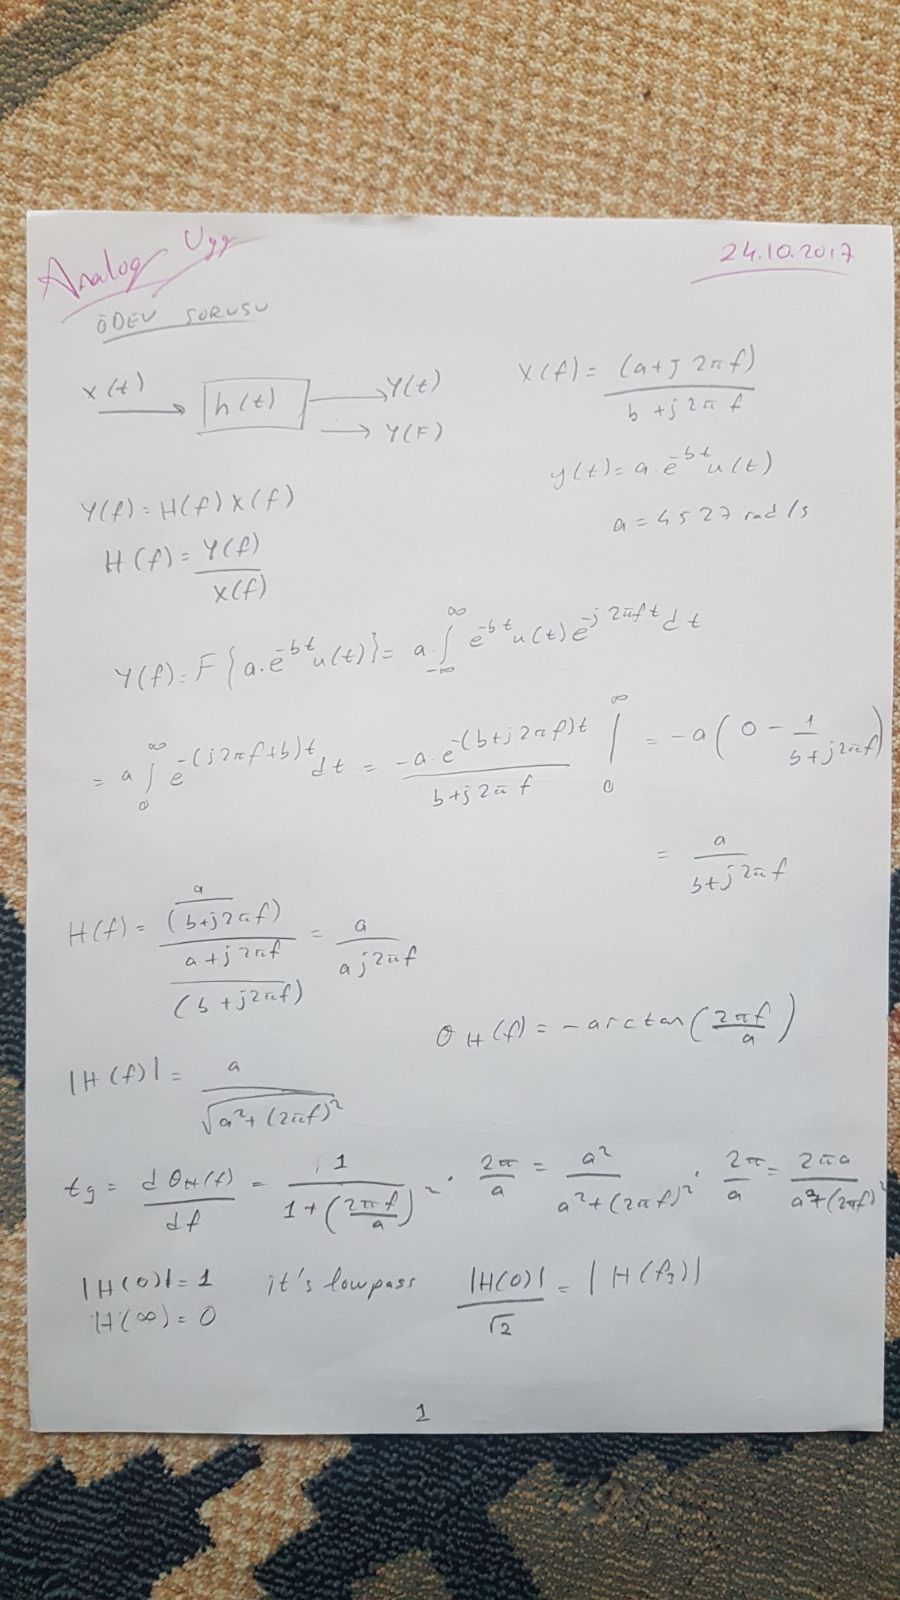 Analog Ugg
24.10.2017
ÖDEV SORUSU
x(t) → h(t) → y(t)
→ Y(F)
X(f) = (a+j2πf) / (b+j2πf)
y(t) = a·e^{-bt} u(t)
a = 4527 rad/s
Y(f) = H(f) X(f)
H(f) = Y(f) / X(f)
Y(f) = F{a·e^{-bt} u(t)} = a·∫_{-∞}^{∞} e^{-bt} u(t) e^{-j2πft} dt
= a ∫_0^∞ e^{-(j2πf+b)t} dt = -a·e^{-(b+j2πf)t} / (b+j2πf) |_0^∞ = -a(0 - 1/(b+j2πf))
= a / (b+j2πf)
H(f) = (a / (b+j2πf)) / ((a+j2πf) / (b+j2πf)) = a / (a j2πf)
θ_H(f) = -arctan(2πf/a)
|H(f)| = a / √(a²+(2πf)²)
tg = dθ_H(f)/df = 1/(1+(2πf/a)²) · 2π/a = a²/(a²+(2πf)²) · 2π/a = 2πa/(a²+(2πf)²)
|H(0)| = 1 it's lowpass |H(0)|/√2 = |H(f₃)|
|H(∞) = 0
1